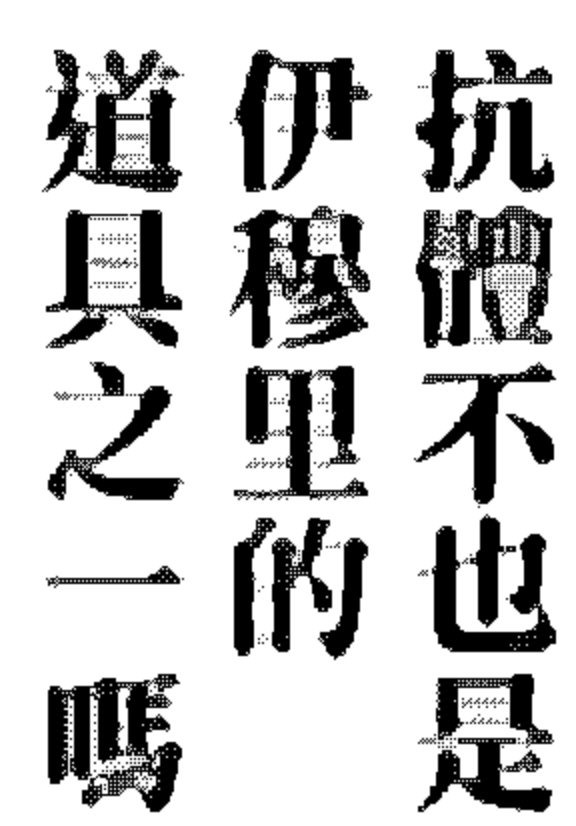 抗體不也是
伊穆里的
道具之一嗎